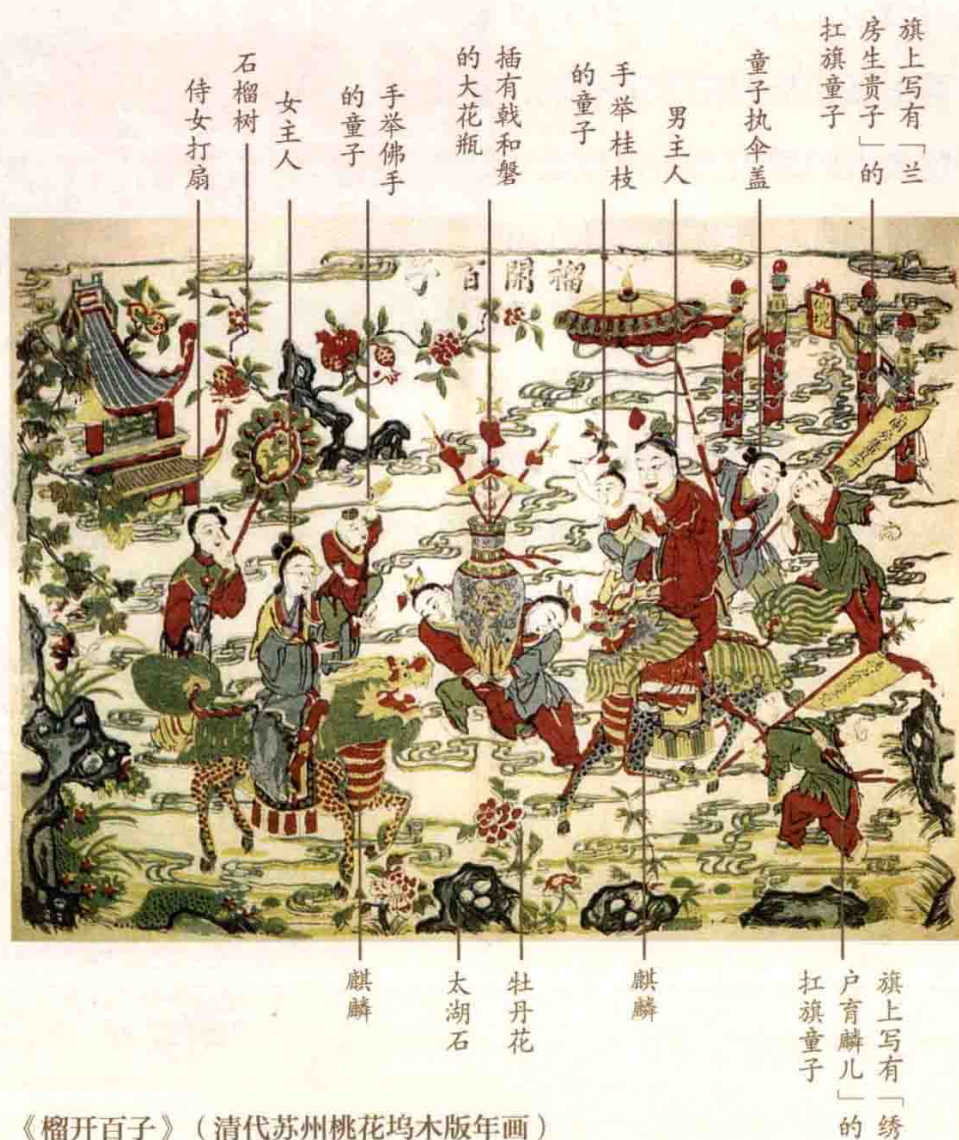 旗上写有「兰
房生贵子」的
扛旗童子
童子执伞盖
男主人
手举桂枝
的童子
插有戟和磐
的大花瓶
手举佛手
的童子
女主人
石榴树
侍女打扇
榴開百子
旗上写有「绣
户育麟儿」的
扛旗童子
麒麟
牡丹花
太湖石
麒麟
《榴开百子》（清代苏州桃花坞木版年画）